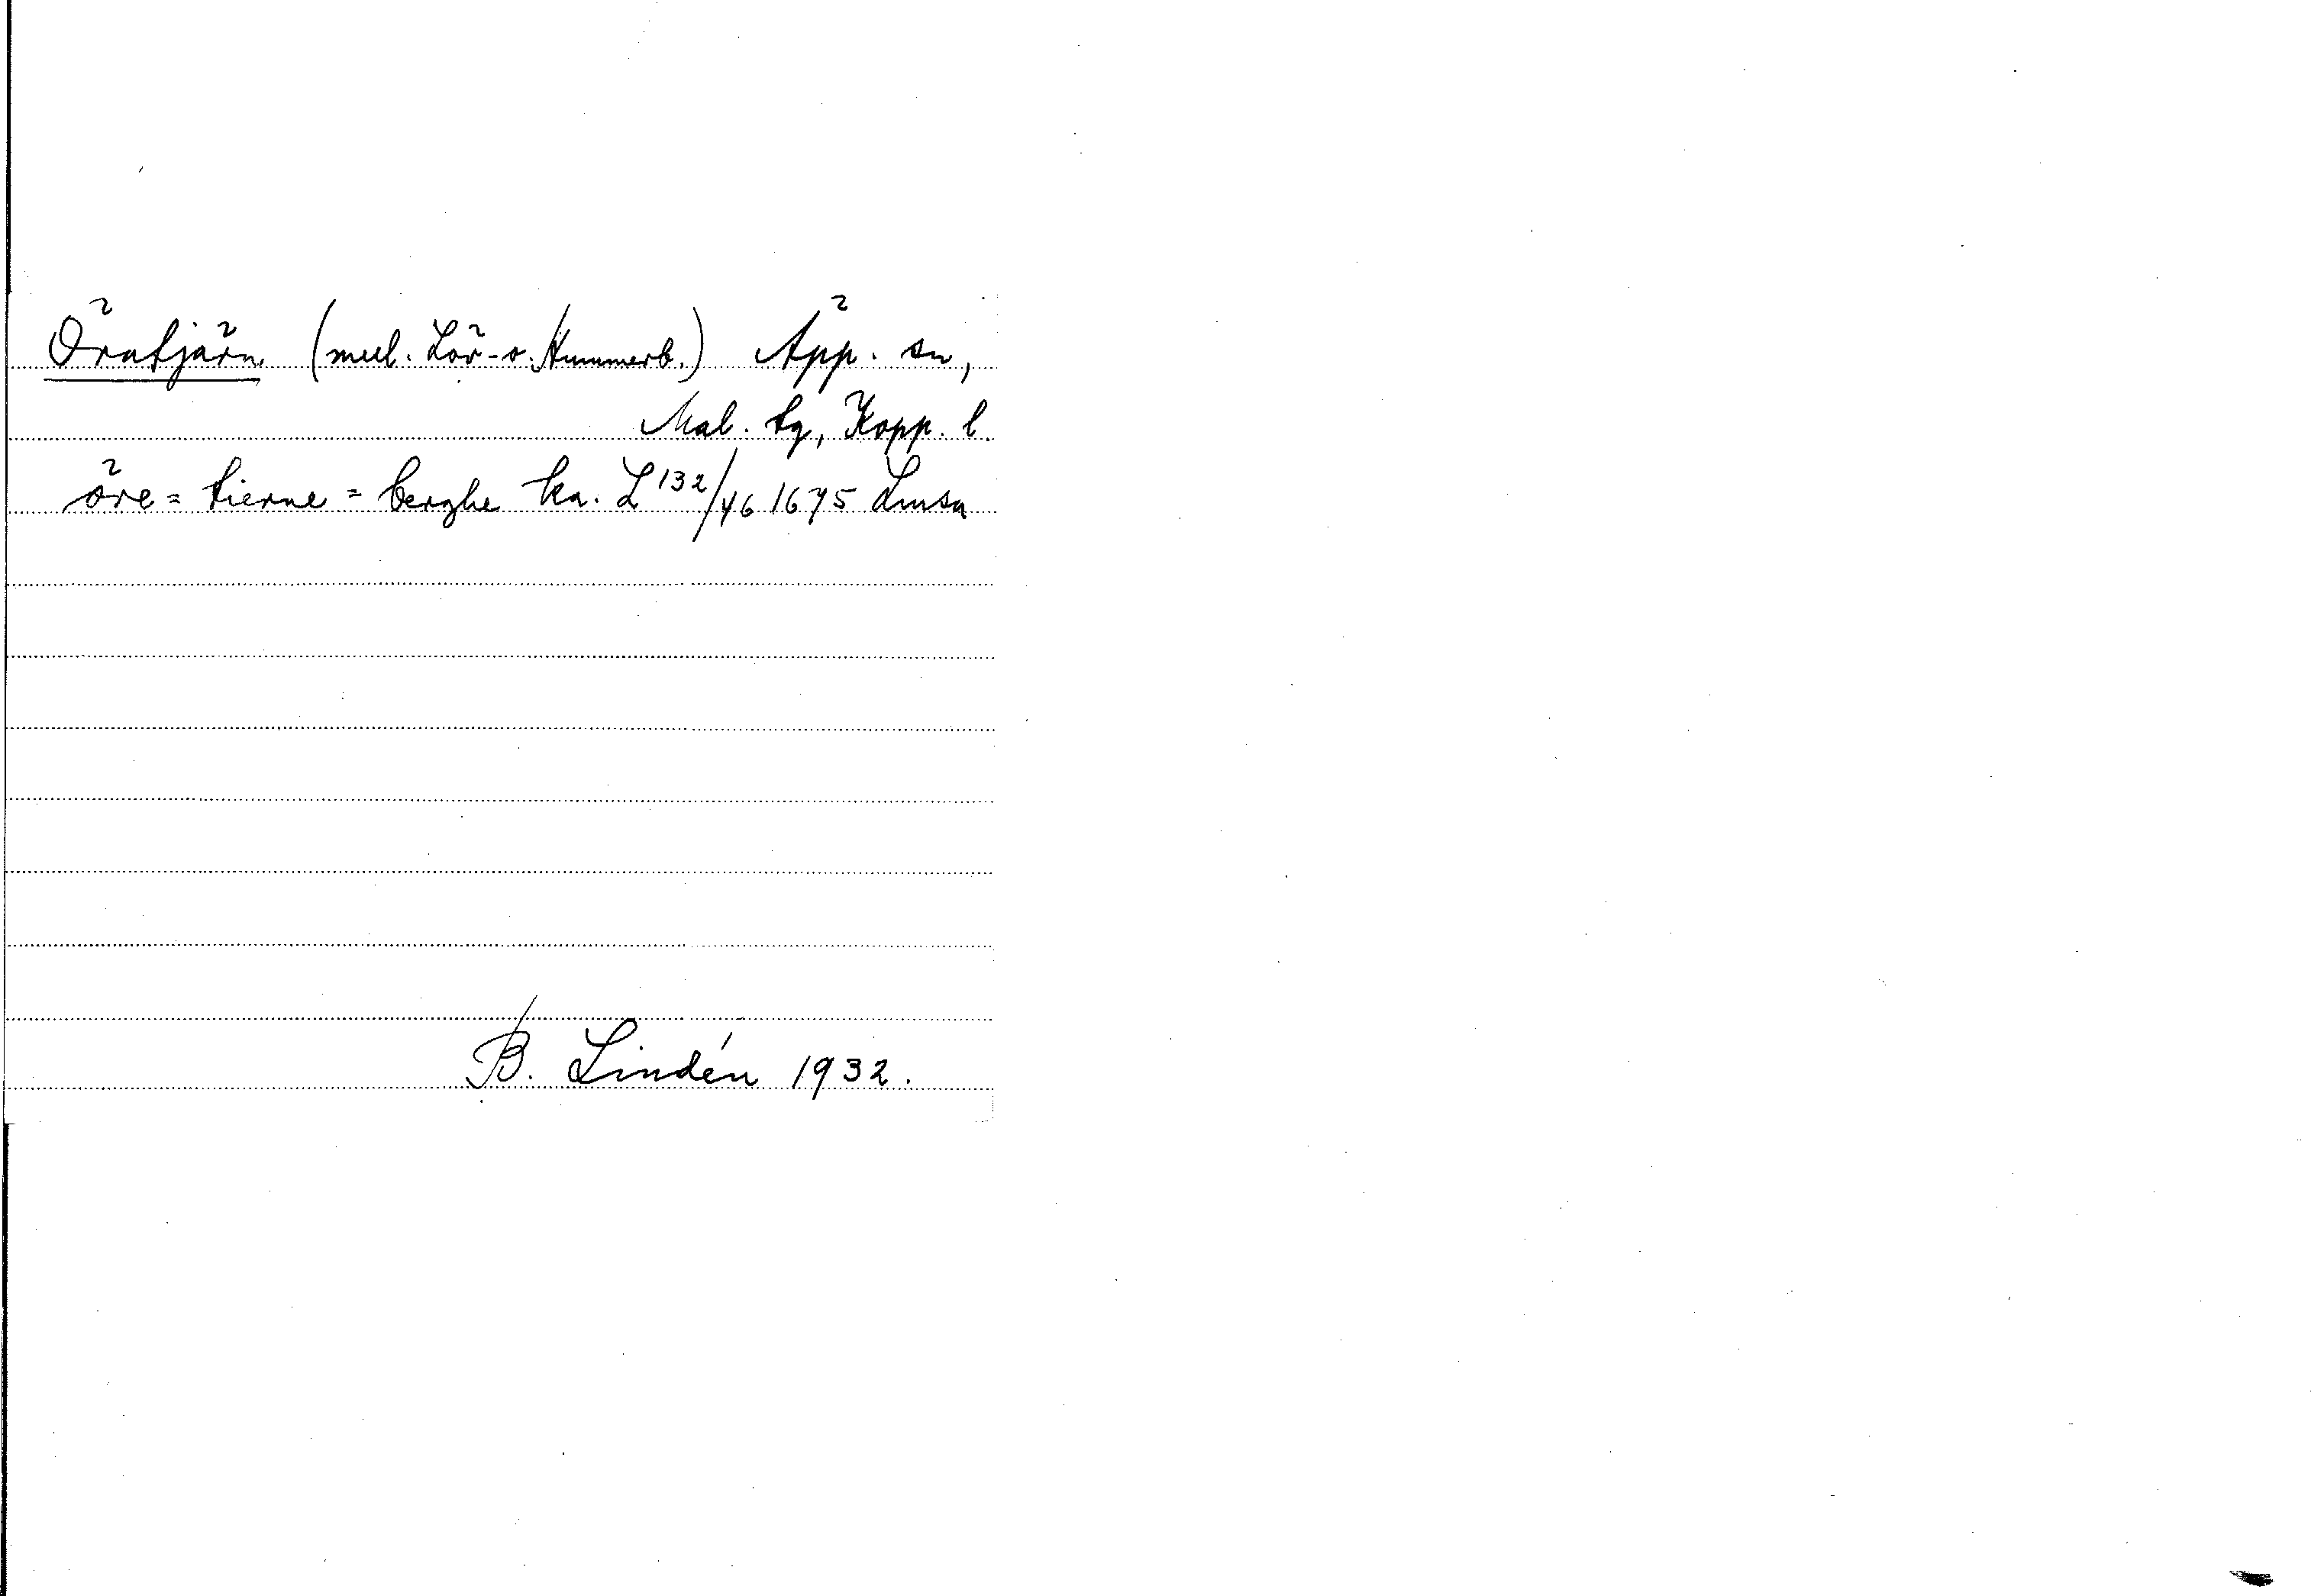 Öratjärn (mel. Löv- o. Hummerb.) Äpp. sn,
Mal. tg, Kopp. l.
öre = tierne = berghe ka. L 132/46 1675 Lmsa
B. Lindén 1932.